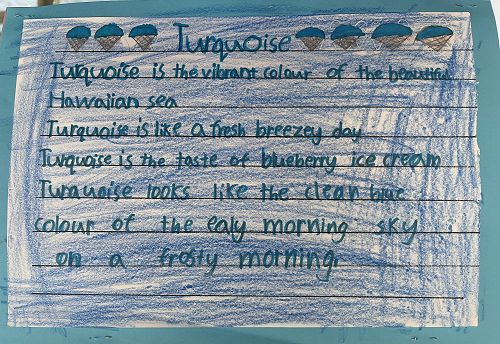 Turquoise
Turquoise is the vibrant colour of the beautiful
Hawaiian sea
Turquoise is like a fresh breezey day
Turquoise is the taste of blueberry ice cream
Turquoise looks like the clear blue
colour of the ealy morning sky
on a frosty morning.